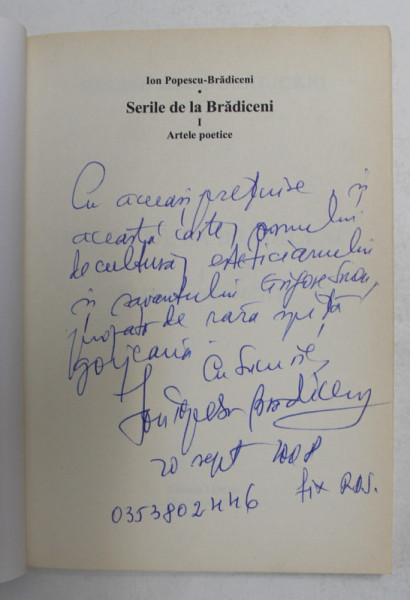 Ion Popescu-Brădiceni
•
Serile de la Brădiceni
I
Artele poetice
Cu aceeași prețuire, și
această carte, omului
de cultură, esteticianului
și savantului Grigore
de rară
Cu
Ion Popescu Brădiceni
20 sept 2008
0353802446 fix RDS.